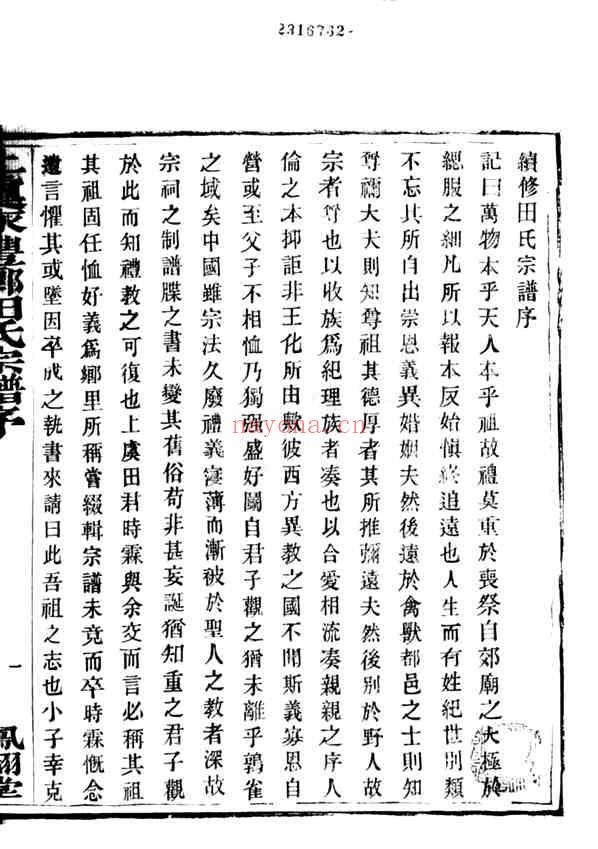 2316762
續修田氏宗譜序
記曰萬物本乎天人本乎祖故禮莫重於喪祭自郊廟之大極於
緦服之細凡所以報本反始愼終追遠也人生而有姓紀世別類
不忘其所自出崇恩義異婚姻夫然後遠於禽獸都邑之士則知
尊禰大夫則知尊祖其德厚者其所推彌遠夫然後別於野人故
宗者尊也以收族爲紀理族者凑也以合愛相流凑親親之序人
倫之本抑詎非王化所由歟彼西方異教之國不聞斯義寡恩自
營或至父子不相恤乃獨强盛好鬭自君子觀之猶未離乎鶉雀
之域矣中國雖宗法久廢禮義寖薄而漸被於聖人之教者深故
宗祠之制譜牒之書未變其舊俗苟非甚妄誕猶知重之君子觀
於此而知禮教之可復也上虞田君時霖與余交而言必稱其祖
其祖固任恤好義爲鄉里所稱嘗綴輯宗譜未竟而卒時霖慨念
遺言懼其或墜因卒成之執書來請曰此吾祖之志也小子幸克
上虞永豐鄉田氏宗譜序
一
鳳翔堂
nayona.cn